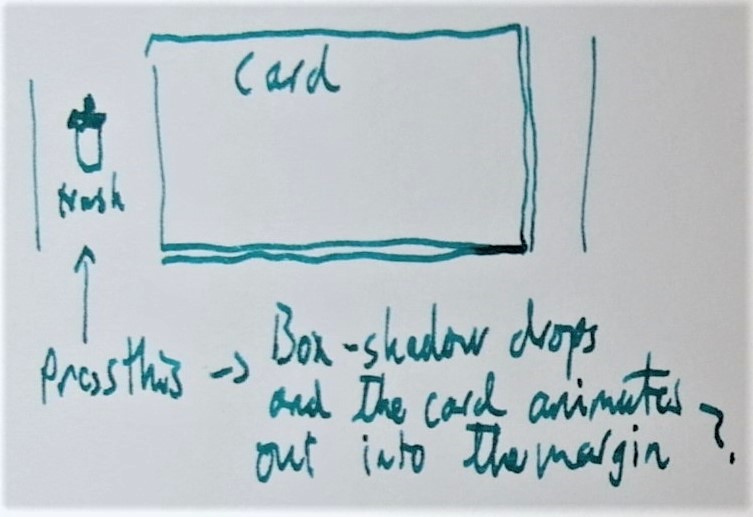 Card
trash
Press this -> Box-shadow drops
and the card animates
out into the margin ?.